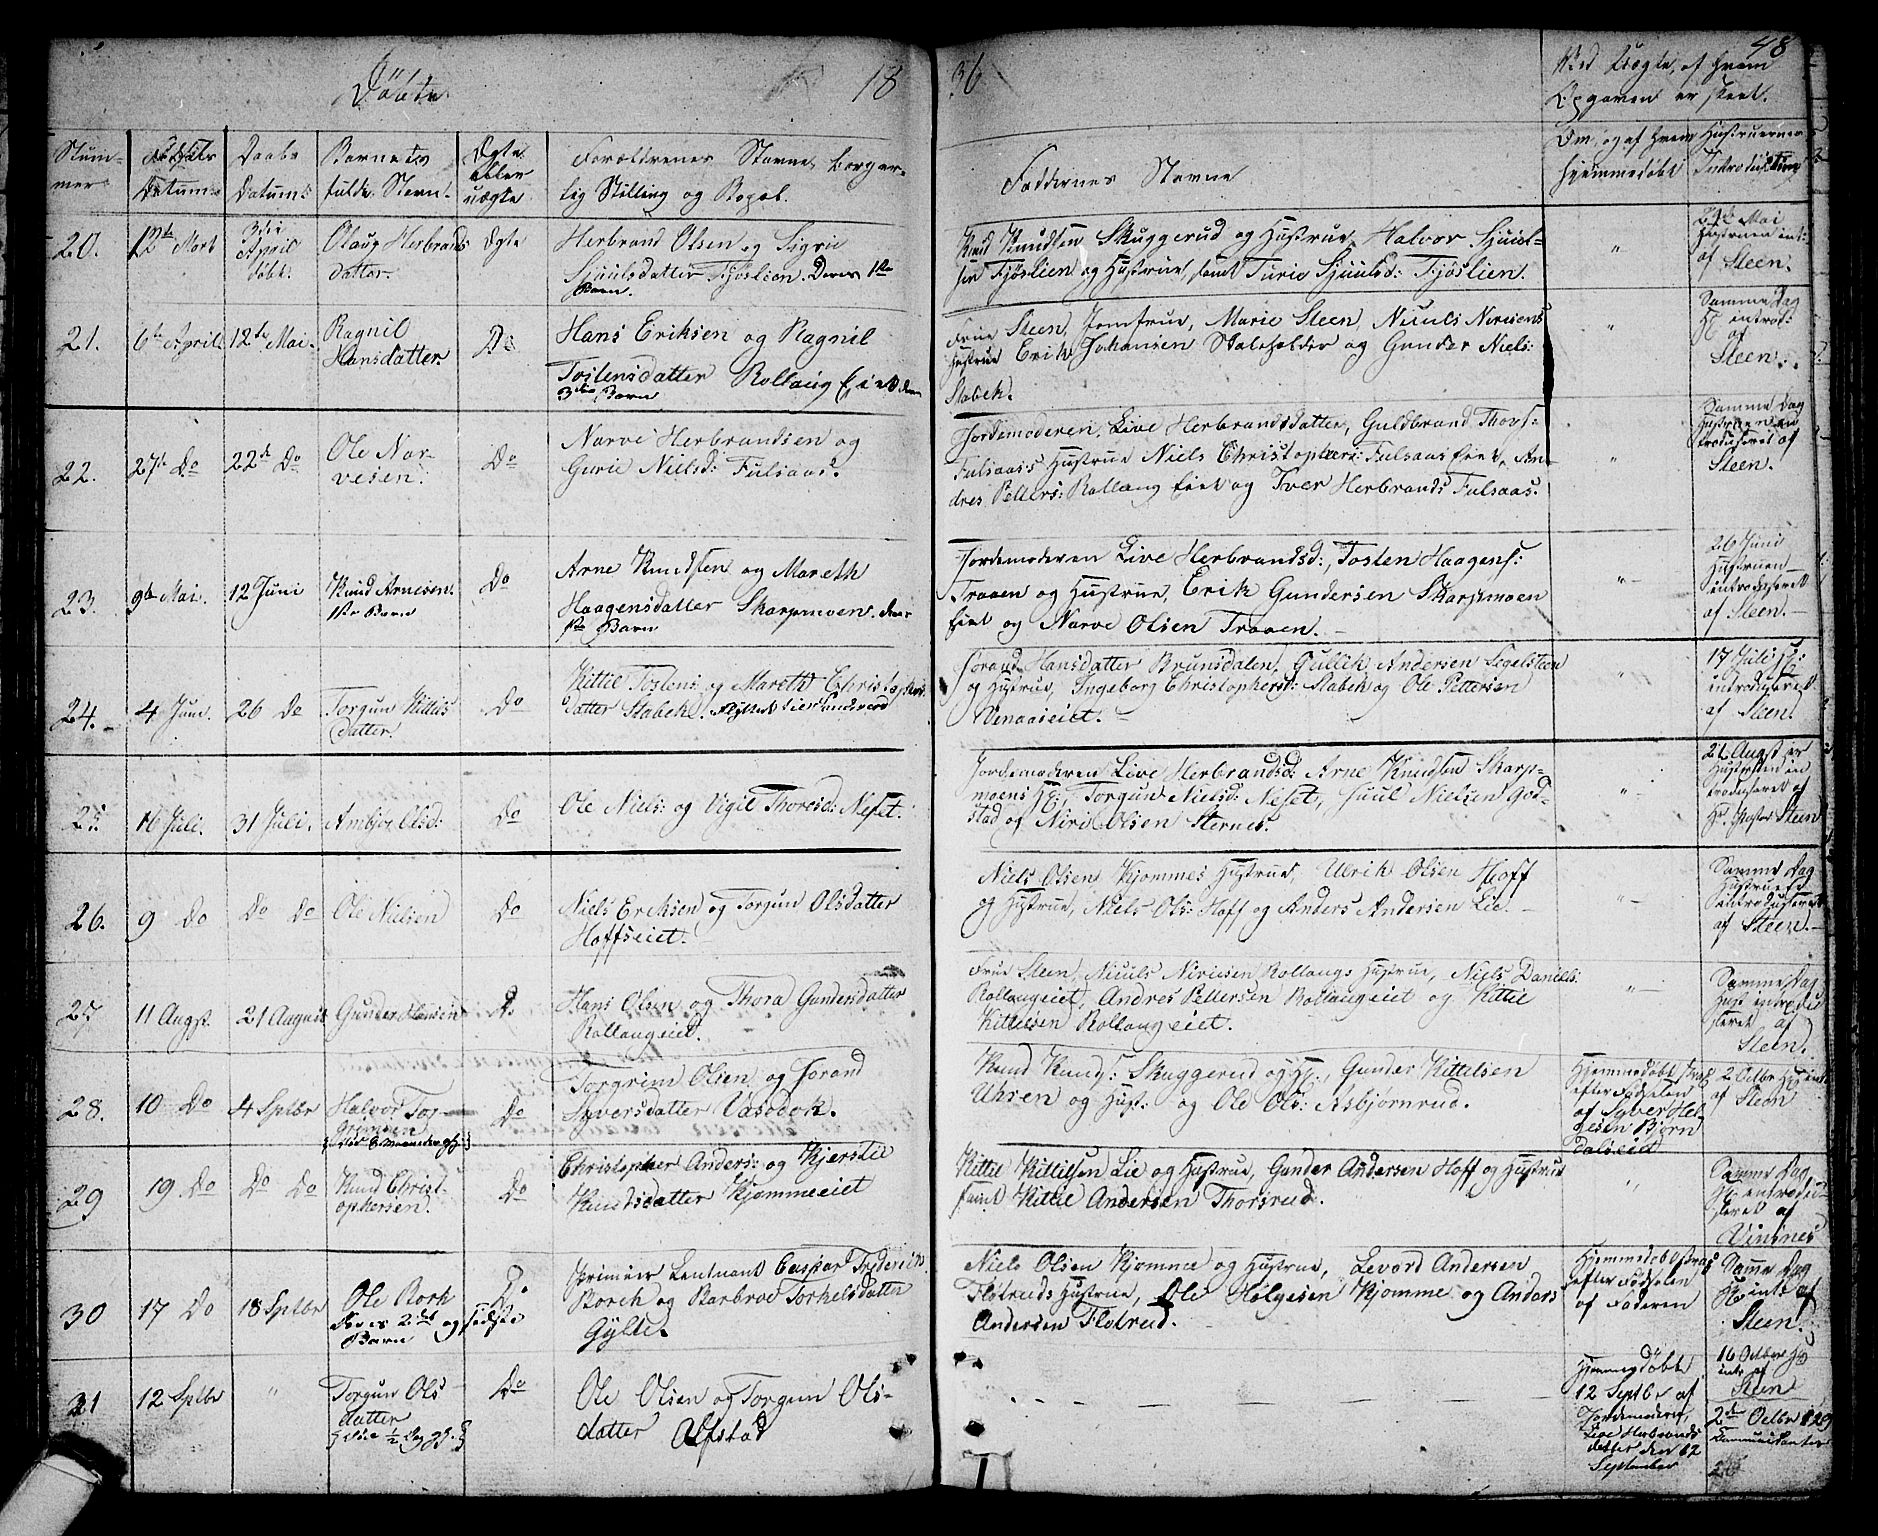 Døbte
18
36
48
Ved Uægte, af hvem
Opgaven er skeet.
Num-
mer
Fødsels
Datum
Daabs
Datum
Barnets
fulde Navn
Ægte
eller
uægte
Forældrenes Navne, borger-
lig Stilling og Bopæl.
Faddernes Navne
Om, og af hvem
hjemmedøbt
Hustruernes
Introduction
20.
12te Marts
3die
April
døbt.
Olaug Herbrands
datter.
Ægte
Herbrand Olsen og Sigrie
Sjuulsdatter Fjøslien. Deres 1ste
Barn.
Knud Knudsen Skuggerud og Hustrue, Halvor Sjuul-
sen Fjøslien og Hustrue, samt Turie Sjuulsd: Fjøslien.
"
24de Mai
Hustruen int:
af Steen.
21.
6te April
12te Mai.
Ragnil
Hansdatter
Do
Hans Eriksen og Ragnil
Tostensdatter Rollaug Eiet deres
3die Barn
Frue Steen, Jomfrue, Marie Steen, Nuuls Nirisens
Hustrue Erik Johansen Stateholder og Gunder Niels:
Slabek.
"
Samme Dag
H: introd:
af
Steen.
22.
27de Do
22de Do
Ole Nar-
vesen.
Do
Narve Herbrandsen og
Gurie Nielsd: Fulsaas.
Jordemoderen, Live Herbrandsdatter, Guldbrand Thors:
Fulsaass Hustrue Niels Christophers: Fulsaas Eiet, An-
dres Petters: Rollaug Eiet og Iver Herbrands Fulsaas.
"
Samme Dag
Hustruen in
troduseret af
Steen.
23.
9de Mai.
12 Juni
Knud Arnesen.
1ste Barn
Do
Arne Knudsen og Mareth
Haagensdatter Skarpmoen. deres
1ste Barn
Jordemoderen Live Herbrandsd:, Tosten Haagens:
Traaen og Hustrue, Erik Gundersen Skarpmoen
Eiet og Narve Olsen Traaen.
"
26 Juni
Hustruen
introduseret
af Steen.
24.
4 Juni.
26 Do
Torgun Kittils
datter.
Do
Kittil Tostens: og Mareth Christophers
datter Slabek.
Jørand Hansdatter Brunsdalen, Gullik Andersen Segelsteen
og Hustrue, Ingeborg Christophersd: Slabek og Ole Pettersen
"
17 Juli H:
introduseret
af Steen.
25.
16 Juli.
31 Juli.
Ambjør Olsd:
Do
Ole Niels: og Vigil Thoresd: Neset.
Jordemoderen Live Herbrandsd: Arne Knudsen Skarp-
moens H:, Torgun Nielsd: Neset, Juul Nielsen God-
stad og Niri Olsen Sternes.
"
21 August er
Hustruen in
troduseret af
Hr. Pastor Steen
26.
9 Do
Do Do
Ole Nielsen
Do
Niels Eriksen og Torgun Olsdatter
Hoffseiet.
Niels Olsen Kjommes Hustrue, Ulrik Olsen Hoff
og Hustrue, Niels Ols: Hoff og Anders Andersen Lie.
"
Samme Dag
Hustruen
introduseret
af Steen.
27
11 Augst.
21 August
Gunder Hansen
Do
Hans Olsen og Thora Gundersdatter
Rollaugeiet.
Frue Steen, Nuuls Nirisen Rollaugs Hustrue, Niels Daniels:
Rollaugeiet, Andres Pettersen Rollaugeiet og Kittil
Kittelsen Rollaugeiet.
"
Samme Dag
Hust: introdu
seret af
Steen.
28.
10 Do
4 Sptbr
Halvor Tor-
grimsen
Do
Torgrim Olsen og Jørand
Syversdatter Vasbøk.
Knud Knuds: Skuggerud og H:, Gunder Kittilsen
Uhren og Hust: og Ole Ols: Asbjørnrud.
Hjemmedøbt strax
efter Fødselen
af Syver Hel-
gesen Bjørn
dalseiet
2 Octbr H: int:
af Steen
29
19 Do
Do Do
Knud Christ-
ophersen.
Do
Christopher Anders: og Kjerstie
Knudsdatter Kjommeeiet
Kittil Kittilsen Lie og Hustrue, Gunder Andersen Hoff og Hustrue
samt Kittil Andersen Thorsrud.
"
Samme Dag
H: introdu-
seret af
Vinsnes
30
17 Do
18 Sptbr
Ole Bork
Deres 2det og sidste
Barn
Do
Primier Leutnant Caspar Frederich
Borch og Barbroe Torkelsdatter
Gylte.
Niels Olsen Kjomme og Hustrue, Levord Andersen
Fløtruds Hustrue, Ole Helgesen Kjomme og Anders
Andersen Fløtrud.
Hjemmedøbt strax
efter Fødselen
af Faderen
Samme Dag
H: int: af
Steen.
31
12 Sptbr
"
Torgun Ols
datter
Do
Ole Olsen og Torgun Ols-
datter Alfstad
Hjemmedøbt
12 Septbr af
Jordemoderen,
Live Herbrands
datter den 12
September
16 Octbr H:
int: af
Steen
2den Octbr 129
Communicanter